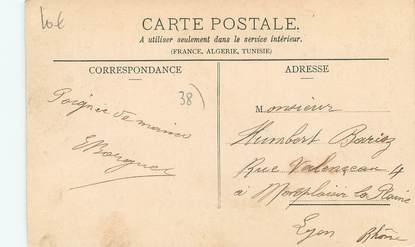 10€
CARTE POSTALE.
A utiliser seulement dans le service intérieur.
(FRANCE, ALGERIE, TUNISIE)
CORRESPONDANCE
ADRESSE
38)
Poignée de mains
Monsieur
Humbert
Rue 4
à Montplaisir la Plaine
Lyon Rhône